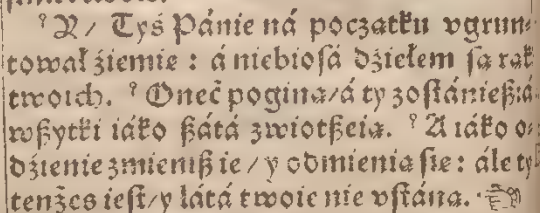 ¹⁰ A/ Tyś Pánie ná początku vgrun-
tował źiemie : á niebiosá dźiełem są rąk
twoich. ¹¹ Oneć poginą/á ty zostánieß/á
wßytki iáko ßátá zwiotßeią. ¹² A iáko o-
dźienie zmieniß ie/ y odmienią sie: ále ty
tenżeś iest/ y látá twoie nie vstáną.